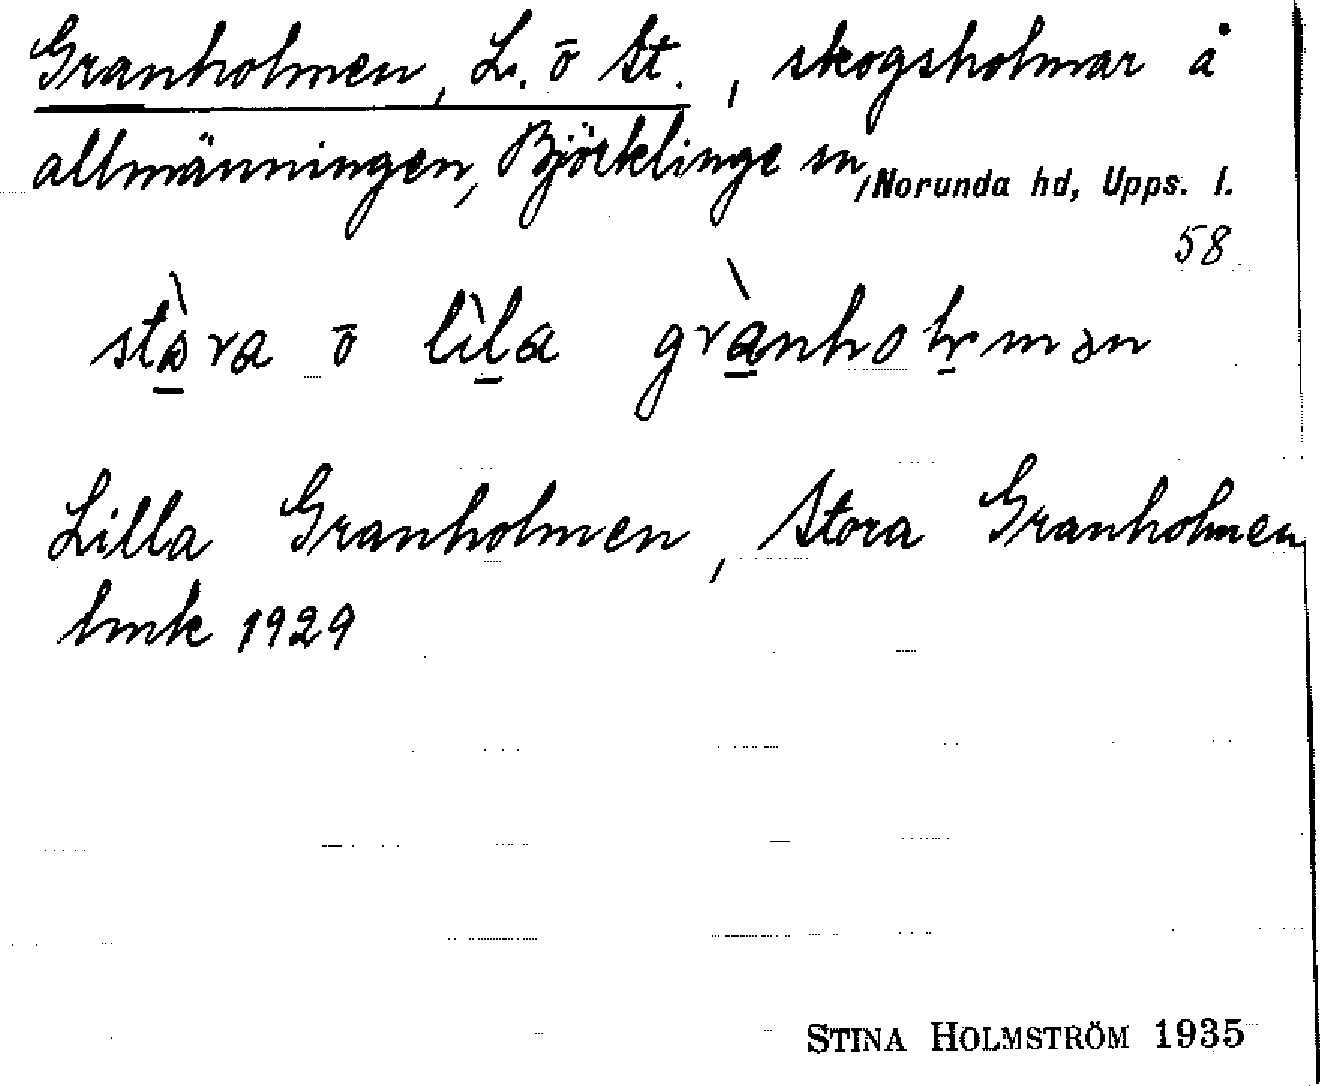 Granholmen, L. ō St., skogsholmar å
allmänningen, Björklinge sn, Norunda hd, Upps. l.
58
stɷ̀ra ō lìla grànholmən
Lilla Granholmen, Stora Granholmen
lmk 1929
STINA HOLMSTRÖM 1935